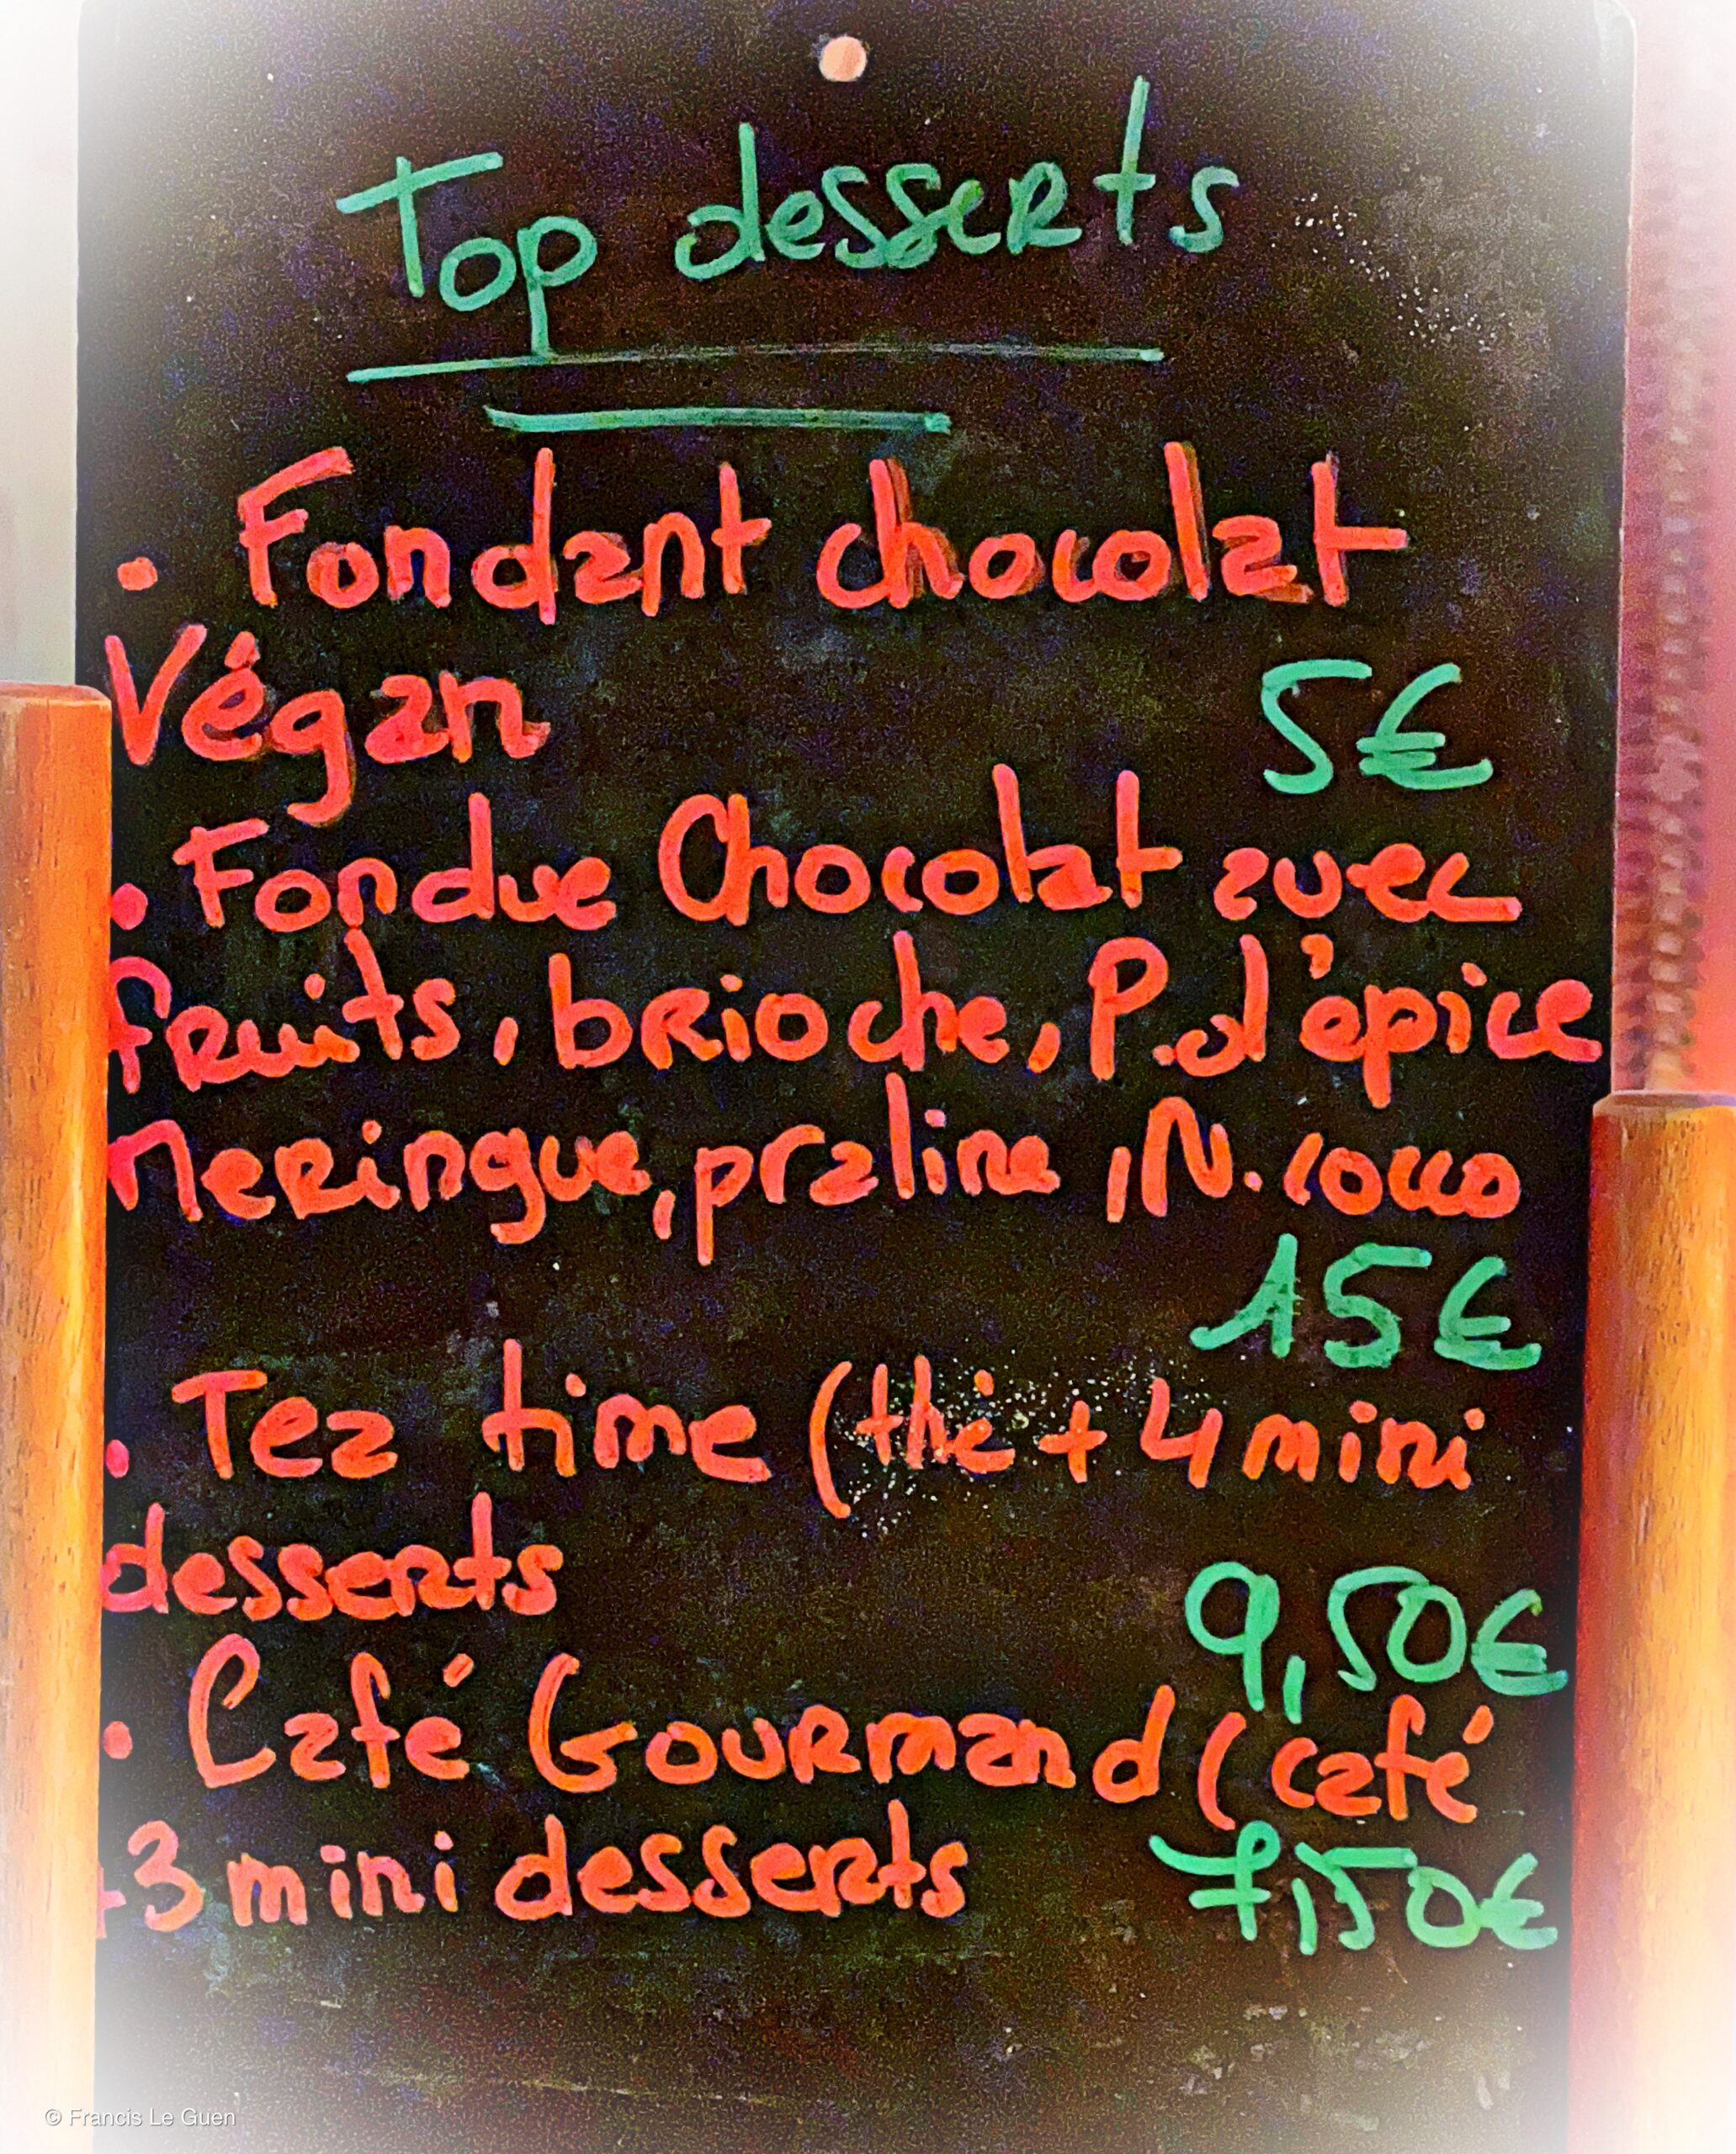 Top desserts
• Fondant chocolat
Végan 5€
• Fondue Chocolat avec
fruits, brioche, P.d'épice
Meringue, praline, N. coco
15€
• Tea time (thé + 4 mini
desserts 9,50€
• Café Gourmand (café
+3 mini desserts 7,50€
© Francis Le Guen